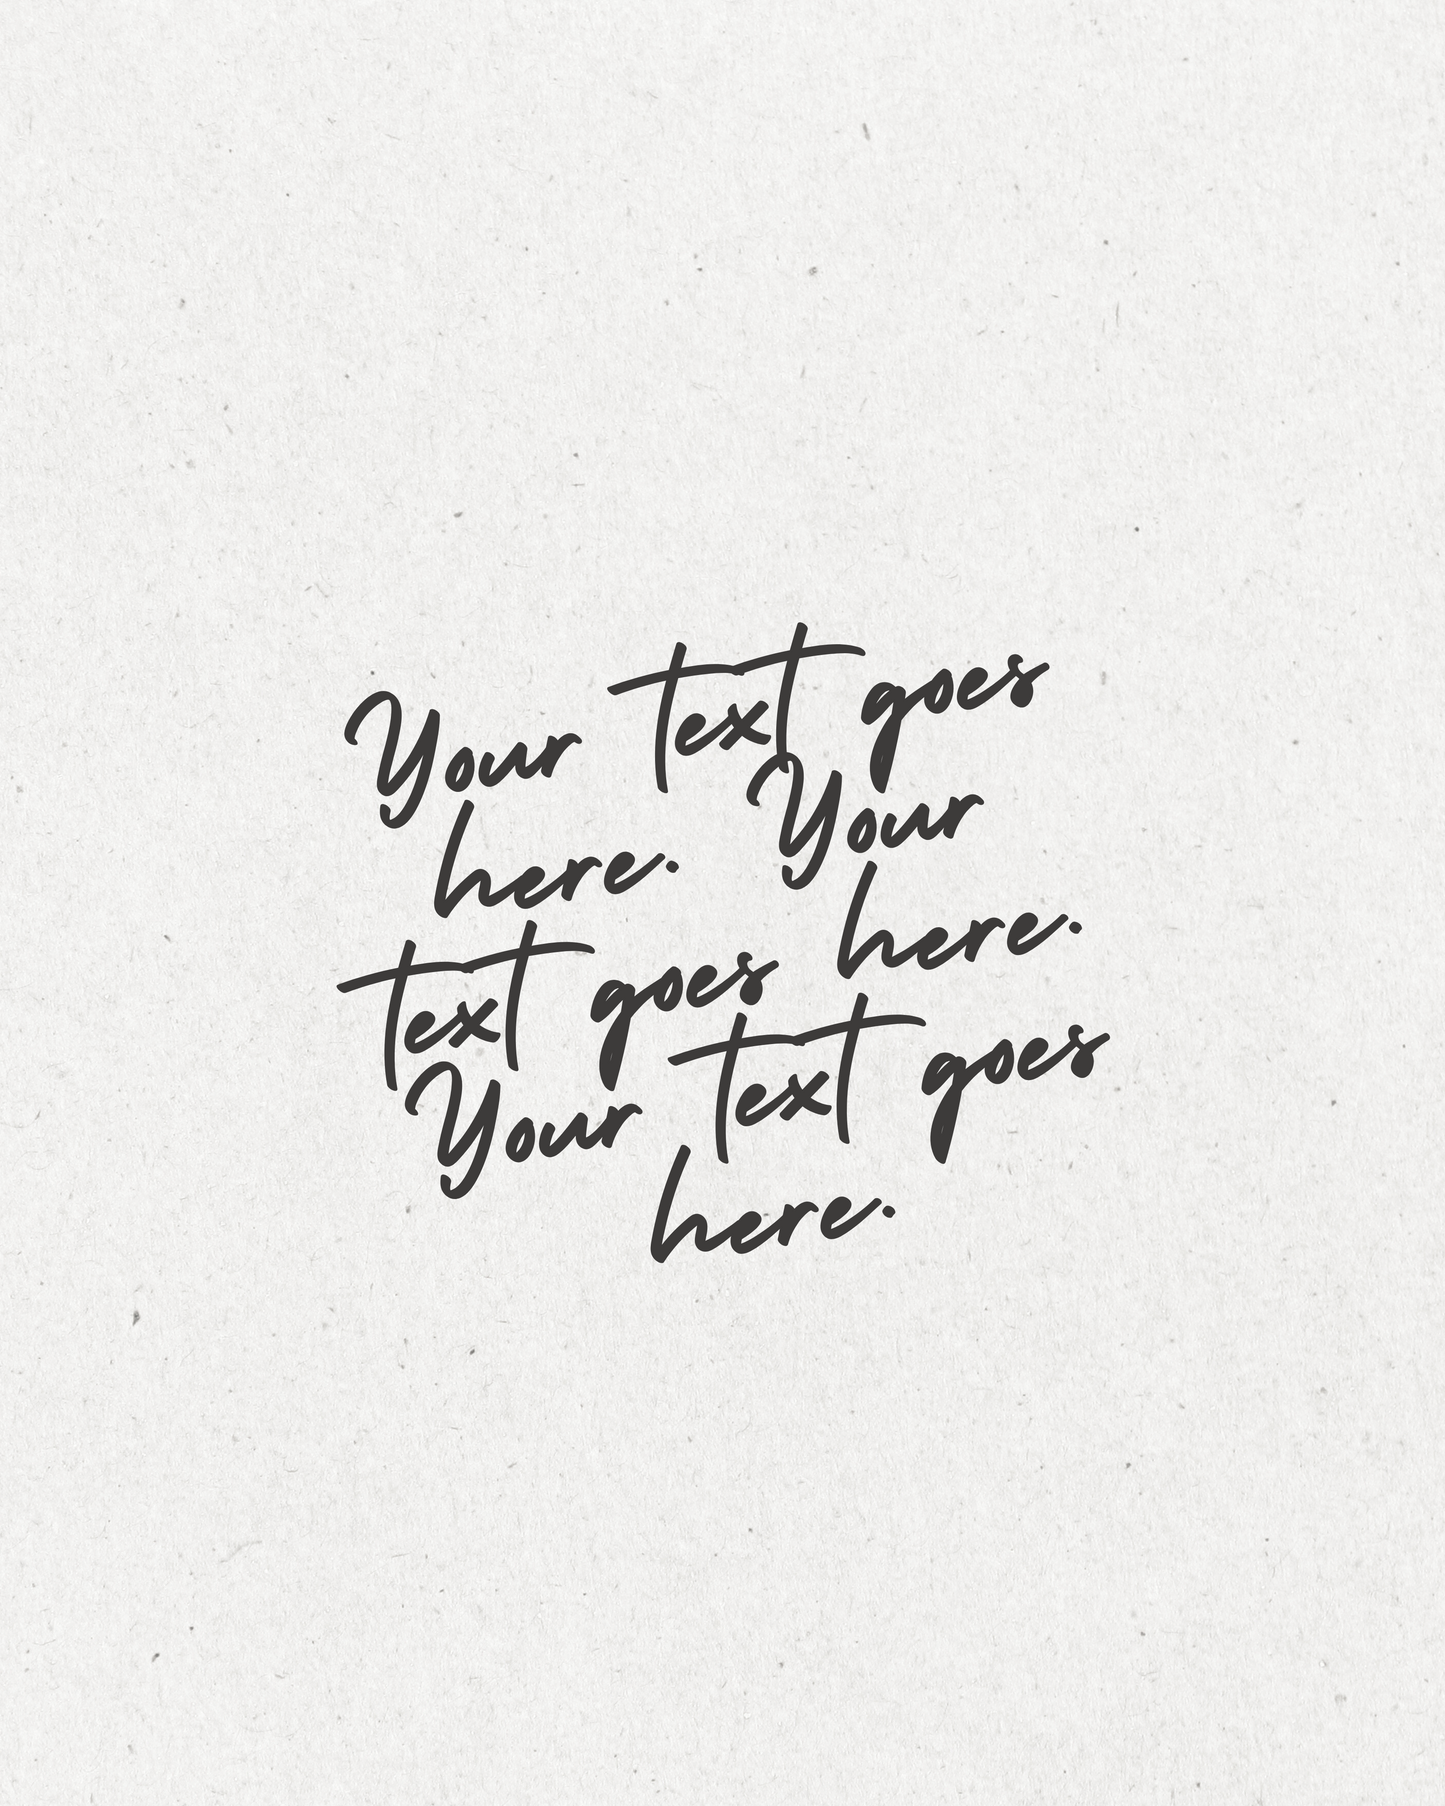 Your text goes
here. Your
text goes here.
Your text goes
here.